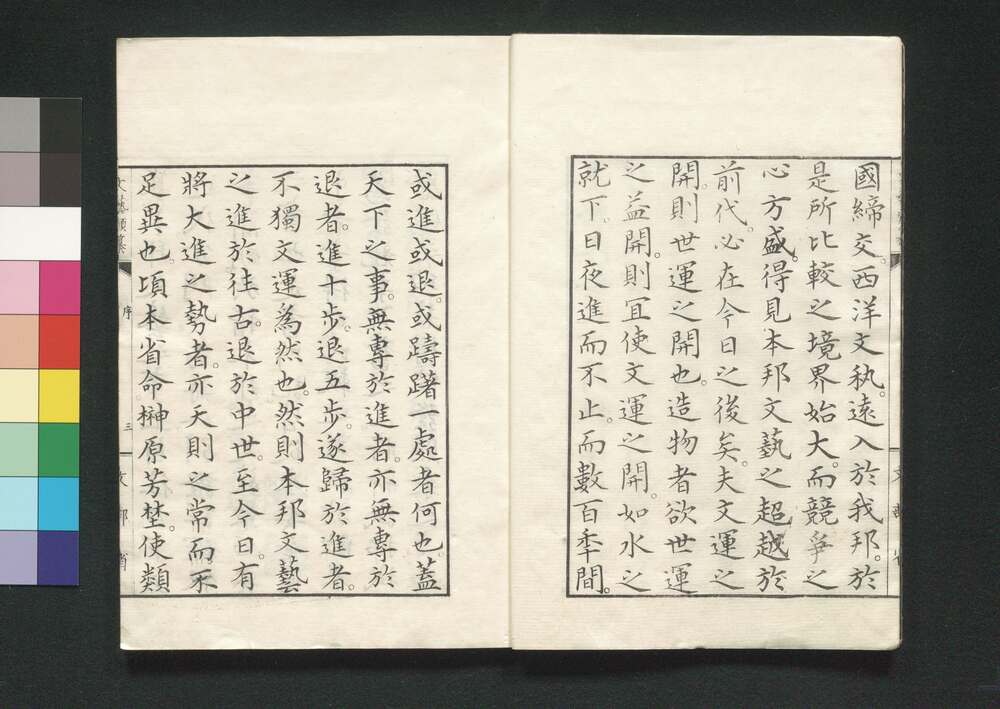 國締交。西洋文秇。遠入於我邦。於
是所比較之境界始大。而競爭之
心方盛。得見本邦文藝之超越於
前代。必在今日之後矣。夫文運之
開。則世運之開也。造物者欲世運
之益開。則冝使文運之開。如水之
就下。日夜進而不止。而數百秊間。
或進或退。或躊躇一處者何也。蓋
天下之事。無專於進者。亦無專於
退者。進十步。退五步。遂歸於進者。
不獨文運爲然也。然則本邦文藝
之進於往古。退於中世。至今日。有
將大進之勢者。亦天則之常而。不
足異也。頃本省命榊原芳埜。使類
文藝類纂 序 三 文部省